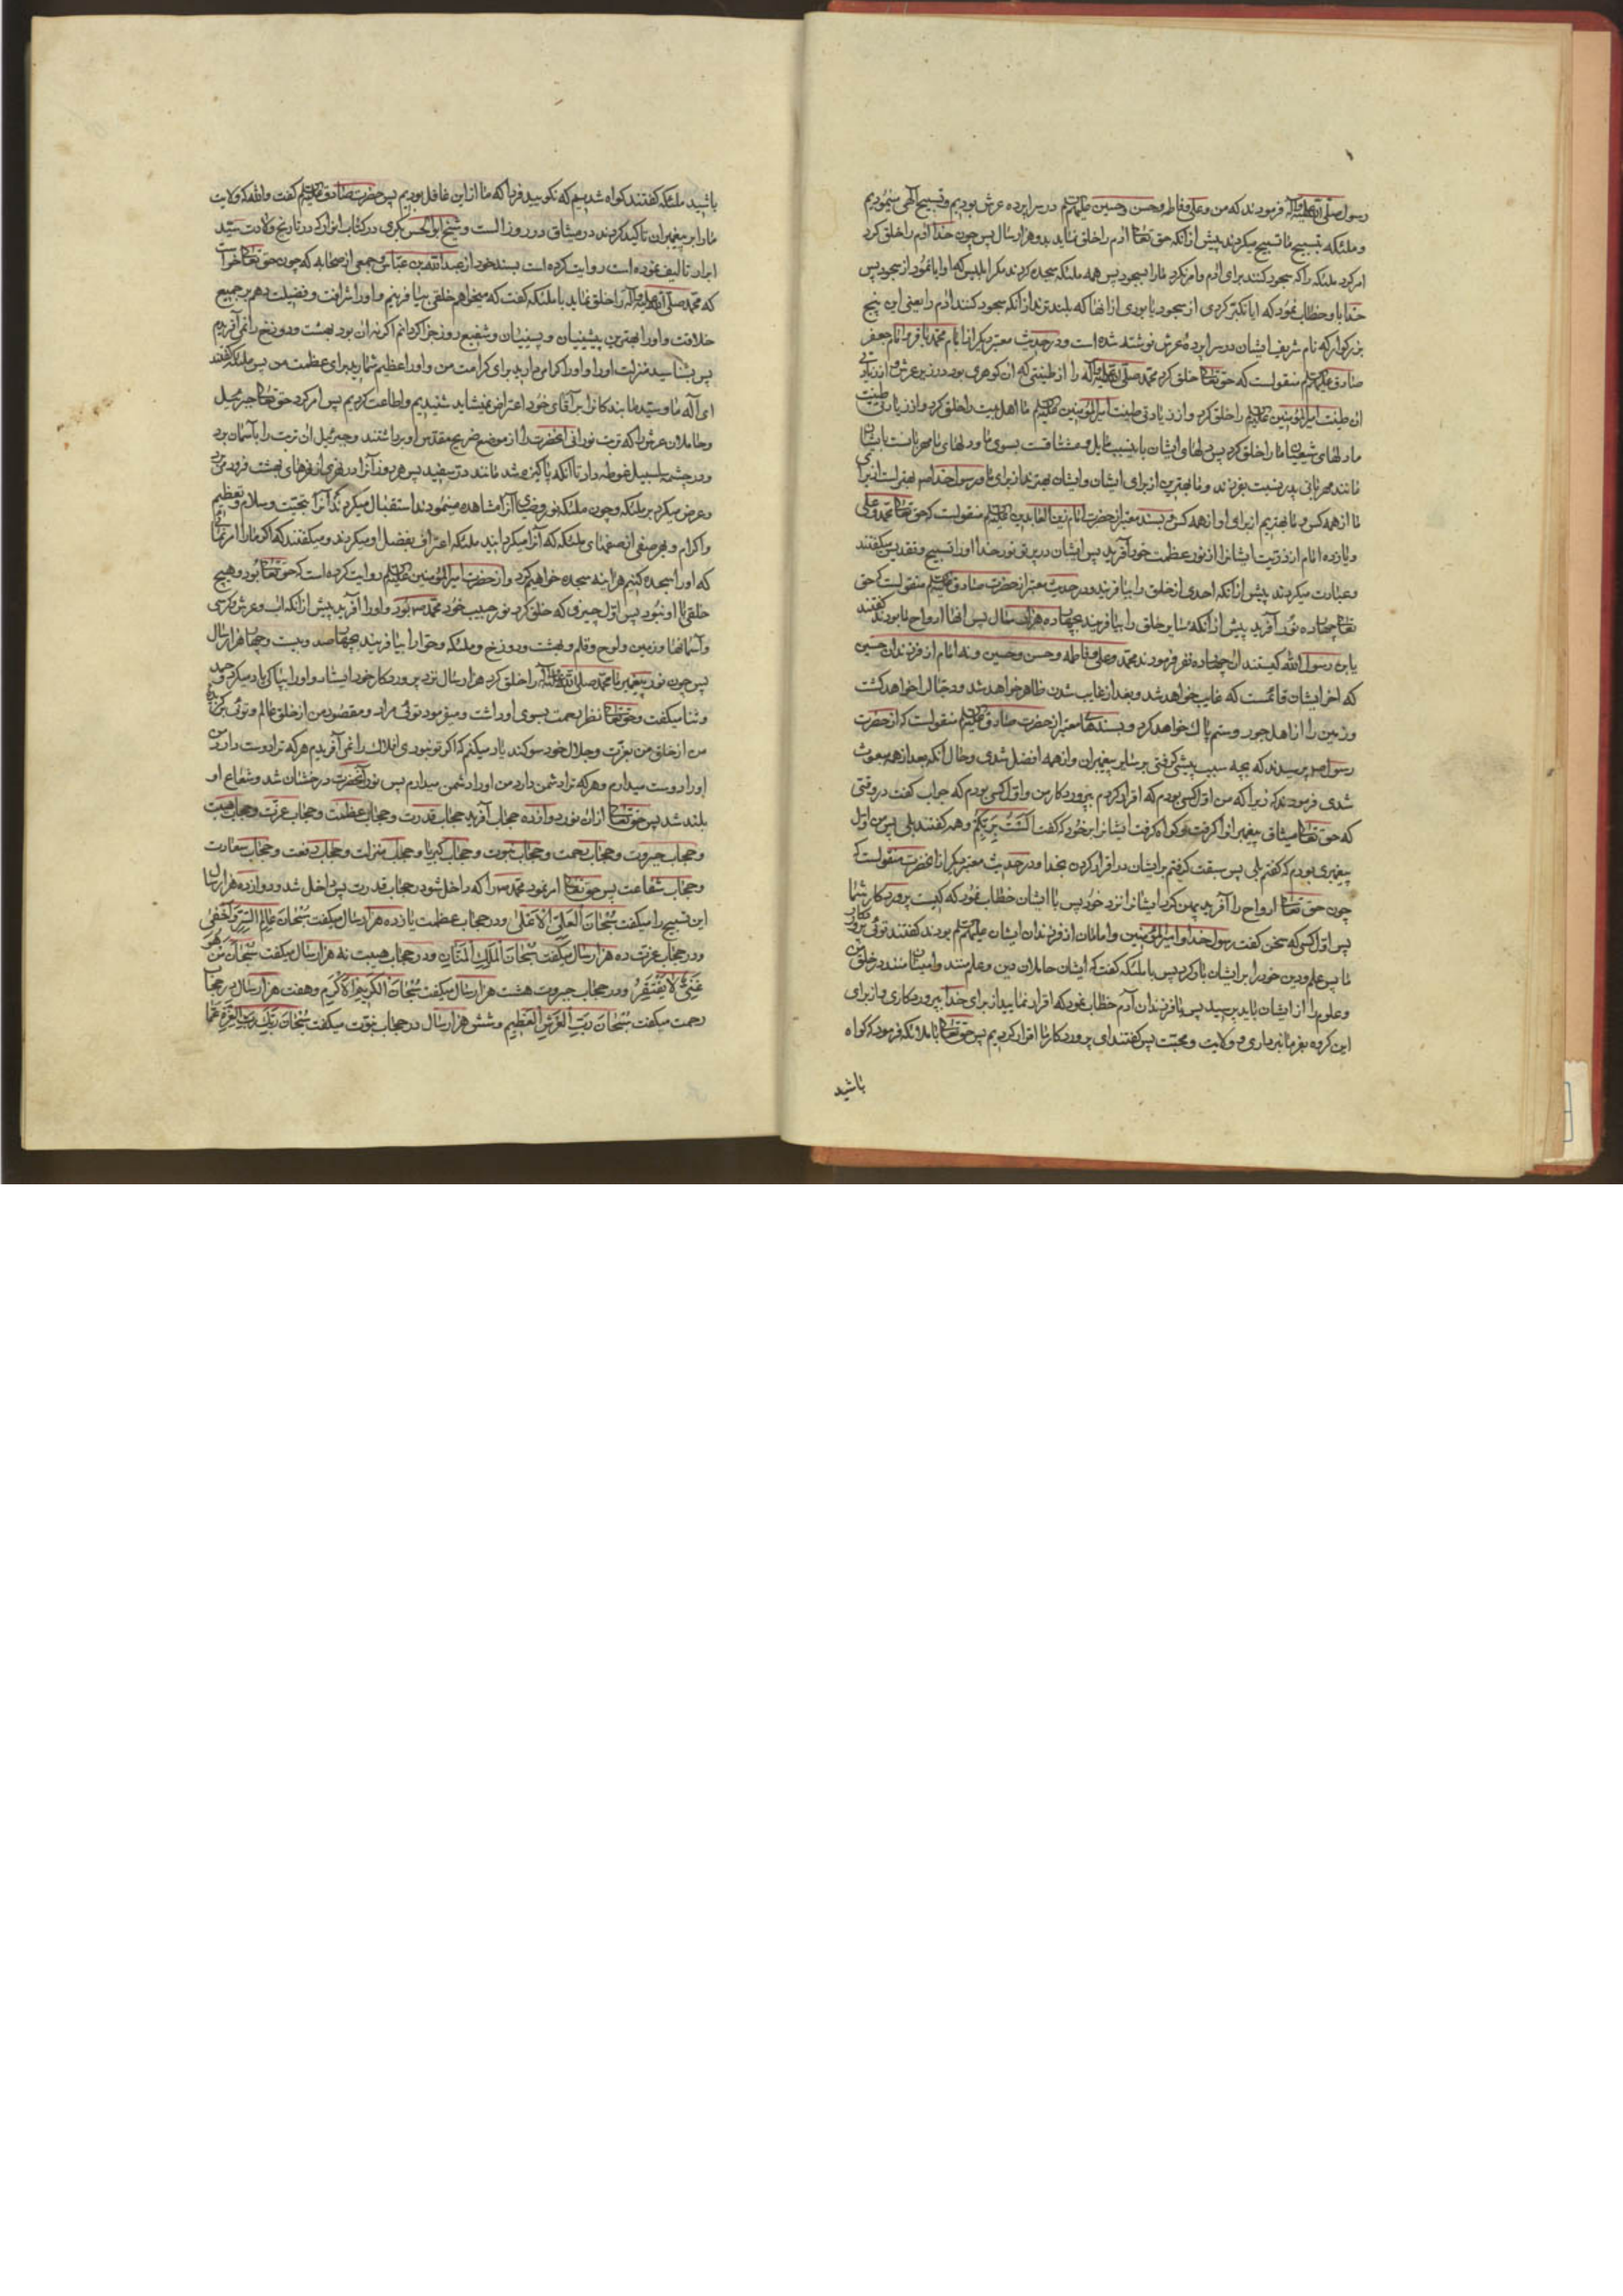 رسول صلی الله علیه و آله فرمودند که من و علی و فاطمه و حسن و حسین علیهم السلام در سرا پرده عرش بودیم و تسبیح آلهی مینمودیم
و ملئکه بتسبیح ما تسبیح میکردند پیش از آنکه حق تعالی آدم را خلق نماید بدو هزار سال پس چون خدا آدم را خلق کرد
امر کرد ملئکه را که سجود کنند برای آدم و امر نکرد ما را بسجود پس همه ملئکه سجده کردند مکر ابلیس که او ابا نمود از سجود پس
خدا باو خطاب نمود که ایا تکبر کردی از سجود یا بودی از آنها که بلند ترند از آنکه سجود کنند آدم را یعنی این پنج
بزرکوار که نام شریف ایشان در سرا پرده عرش نوشته شده است و در حدیث معتبر دیکر از امام محمد باقر و امام جعفر
صادق علیهم السلام منقولست که حق تعالی خلق کرد محمد صلی الله علیه و آله را از طینتی که آن کوهری بود در زیر عرش و از زیادتی
آن طینت امیر المؤمنین علیه السلام را خلق کرد و از زیادتی طینت امیر المؤمنین علیه السلام ما اهل بیت را خلق کرد و از زیادتی طینت
ما دلهای شیعیان ما را خلق کرد پس دلهای ایشان باین سبب مایل و مشتاقست بسوی ما و دلهای ما مهربانست بایشان
مانند مهربانی پدر نسبت بفرزند و ما بهتریم از برای ایشان و ایشان بهترند از برای ما و رسول خدا ص بهتر است از برای
ما از همه کس و ما بهتریم از برای او از همه کس و بسند معتبر از حضرت امام زین العابدین علیه السلام منقولست که حق تعالی محمد و علی
و یازده امام از ذریت ایشانرا از نور عظمت خود آفرید پس ایشان در پرتو نور خدا او را تسبیح و تقدیس میکفتند
و عبادت میکردند پیش از آنکه احدی از خلق را بیافریند و در حدیث معتبر از حضرت صادق علیه السلام منقولست که حق
تعالی چهارده نور آفرید پیش از آنکه سایر خلق را بیافریند بچهارده هزار سال پس آنها ارواح ما بودند کفتند
یابن رسول الله کیستند آن چهارده نفر فرمودند محمد و علی و فاطمه و حسن و حسین و نه امام از فرزندان حسین
که آخر ایشان قائمست که غایب خواهد شد و بعد از غایب شدن ظاهر خواهد شد و دجال را خواهد کشت
و زمین را از اهل جور و ستم پاک خواهد کرد و بسندهای معتبر از حضرت صادق علیه السلام منقولست که از حضرت
رسول ص پرسیدند که بچه سبب پیشی کرفتی بر سایر پیغمبران و از همه افضل شدی و حال آنکه بعد از همه مبعوث
شدی فرمودند که زیرا که من اول کسی بودم که اقرار کردم بپروردکار من و اول کسی بودم که جواب کفت در وقتی
که حق تعالی میثاق پیغمبرانرا کرفت و کواه کرفت ایشانرا بر خود که کفت الست بربکم و همه کفتند بلی پس من اول
پیغمبری بودم که کفتم بلی پس سبقت کرفتم بر ایشان در اقرار کردن بخدا و در حدیث معتبر دیکر از آنحضرت منقولست که
چون حق تعالی ارواح را آفرید پهن کرد ایشانرا نزد خود پس با ایشان خطاب نمود که کیست پروردکار شما
پس اول کسی که سخن کفت رسول خدا و امیر المؤمنین و امامان از فرزندان ایشان علیهم السلام بودند کفتند توئی پروردکار
ما پس علم و دین خود را بر ایشان بار کرد پس با ملئکه کفت که ایشان حاملان دین و علم منند و امینان منند در خلق من
و علوم را از ایشان باید پرسید پس با فرزندان آدم خطاب نمود که اقرار نمایید از برای خدا بپروردکاری و از برای
این کروه بفرمانبرداری و ولایت و محبت پس کفتند ای پروردکار ما اقرار کردیم پس حق تعالی با ملائکه فرمود که کواه
باشید
باشید ملئکه کفتند کواه شدیم که نکویید فردا که ما از این غافل بودیم پس حضرت صادق علیه السلام کفت والله که ولایت
ما را بر پیغمبران تاکید کردند در میثاق در روز الست و شیخ ابو الحسن بکری در کتاب انوار که در تاریخ ولادت سید
ابرار تالیف نموده است روایت کرده است بسند خود از عبد الله بن عباس و جمعی از صحابه که چون حق تعالی خواست
که محمد صلی الله علیه و آله را خلق نماید با ملئکه کفت که میخواهم خلقی بیافرینم و او را شرافت و فضیلت دهم بر جمیع
خلایق و او را بهترین پیشینیان و پسینیان و شفیع روز جزا کردانم اکر نه آن بود بهشت و دوزخ را نمی آفریدم
پس بشناسید منزلت او را و او را کرامی دارید برای کرامت من و او را عظیم شمارید برای عظمت من پس ملئکه کفتند
ای آله ما و سید ما بندکانرا بر آقای خود اعتراض نمیشاید شنیدیم و اطاعت کردیم پس امر کرد حق تعالی جبرئیل
و حاملان عرش را که تربت نورانی آنحضرت را از موضع ضریح مقدس او برداشتند و جبرئیل آن تربت را بآسمان برد
و در چشمه سلسبیل غوطه داد تا آنکه پاکیزه شد مانند در سفید پس هر روز آنرا در نهری از نهرهای بهشت فرو می برد
و عرض میکرد بر ملئکه و چون ملئکه نور و ضیای آنرا مشاهده مینمودند استقبال میکردند آنرا بتحیت و سلام و تعظیم
و اکرام و بهر صفی از صفهای ملئکه که آنرا میکردانید ملئکه اعتراف بفضل او میکردند و میکفتند که اکر ما را امر نمائی
که او را سجده کنیم هر اینه سجده خواهیم کرد و از حضرت امیر المؤمنین علیه السلام روایت کرده است که حق تعالی بود و هیچ
خلقی با او نبود پس اول چیزی که خلق کرد نور حبیب خود محمد ص بود و او را آفرید پیش از آنکه آب و عرش و کرسی
و آسمانها و زمین و لوح و قلم و بهشت و دوزخ و ملئکه و حوا را بیافریند بچهار صد و بیست و چهار هزار سال
پس چون نور پیغمبر ما محمد صلی الله علیه و آله را خلق کرد هزار سال نزد پروردکار خود ایستاد و او را بپاکی یاد میکرد و حمد
و ثنا میکفت و حق تعالی نظر رحمت بسوی او داشت و میفرمود توئی مراد و مقصود من از خلق عالم و توئی برکزیده
من از خلق من بعزت و جلال خود سوکند یاد میکنم که اکر تو نبودی افلاک را نمی آفریدم هر که ترا دوست دارد من
او را دوست میدارم و هر که ترا دشمن دارد من او را دشمن میدارم پس نور آنحضرت درخشان شد و شعاع او
بلند شد پس حق تعالی از آن نور دوازده حجاب آفرید حجاب قدرت و حجاب عظمت و حجاب عزت و حجاب هیبت
و حجاب جبروت و حجاب رحمت و حجاب نبوت و حجاب کبریا و حجاب منزلت و حجاب رفعت و حجاب سعادت
و حجاب شفاعت پس حق تعالی امر نمود محمد ص را که داخل شود در حجاب قدرت پس داخل شد و دوازده هزار سال
این تسبیح را میکفت سبحان العلی الاعلی و در حجاب عظمت یازده هزار سال میکفت سبحان عالم السر و اخفی
و در حجاب عزت ده هزار سال میکفت سبحان الملک المنان و در حجاب هیبت نه هزار سال میکفت سبحان من هو
غنی لا یفتقر و در حجاب جبروت هشت هزار سال میکفت سبحان الکریم الاکرم و هفت هزار سال در حجاب
رحمت میکفت سبحان رب العرش العظیم و شش هزار سال در حجاب نبوت میکفت سبحان ربک رب العزة عما